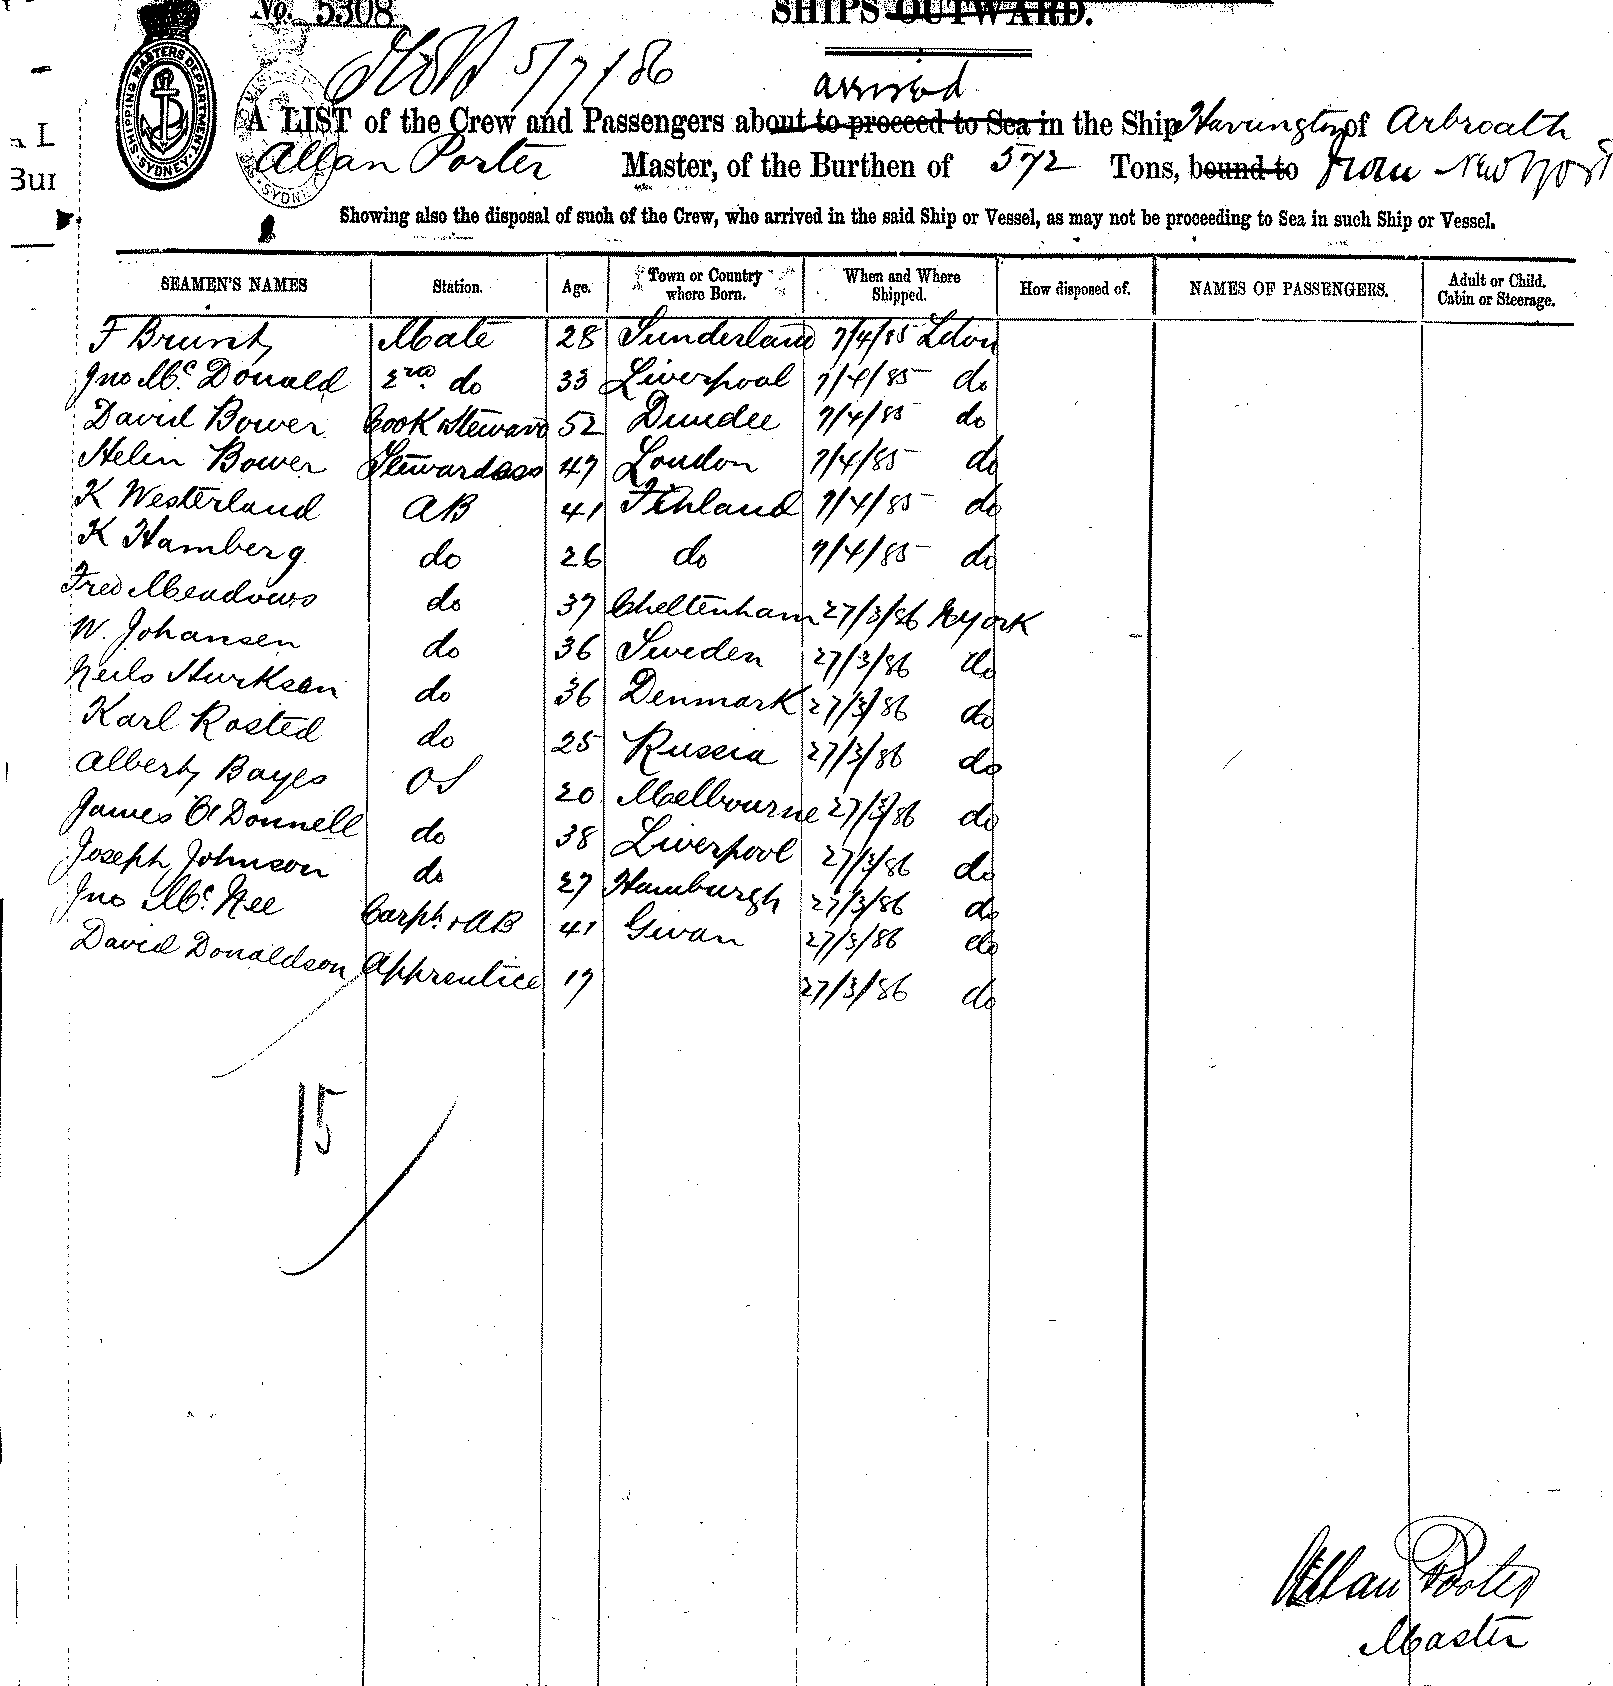 No. 5308
SHIPS OUTWARD.
5/7/86
arrived
A LIST of the Crew and Passengers about to proceed to Sea in the Ship Havington of Arbroath
Allan Porter Master, of the Burthen of 572 Tons, bound to from New York
Showing also the disposal of such of the Crew, who arrived in the said Ship or Vessel, as may not be proceeding to Sea in such Ship or Vessel.
SEAMEN'S NAMES Station. Age. Town or Country where Born. When and Where Shipped. How disposed of. NAMES OF PASSENGERS. Adult or Child. Cabin or Steerage.
F Brunt Mate 28 Sunderland 7/4/85 Ldon
Jno Mc Donald 2nd do 33 Liverpool 7/4/85 do
David Bower Cook & Steward 52 Dundee 7/4/85 do
Helen Bower Stewardess 47 London 7/4/85 do
K Westerland AB 41 Finland 7/4/85 do
K Hamberg do 26 do 7/4/85 do
Fred Meadows do 37 Cheltenham 27/3/86 NYork
W. Johansen do 36 Sweden 27/3/86 do
Neils do 36 Denmark 27/3/86 do
Karl Rosted do 25 Russia 27/3/86 do
Albert Bayes OS 20 Melbourne 27/3/86 do
James O'Donnell do 38 Liverpool 27/3/86 do
Joseph Johnson do 27 Hamburgh 27/3/86 do
Jno Mc Nee Carptr & AB 41 Givan 27/3/86 do
David Donaldson Apprentice 17 27/3/86 do
15
Allan Porter
Master